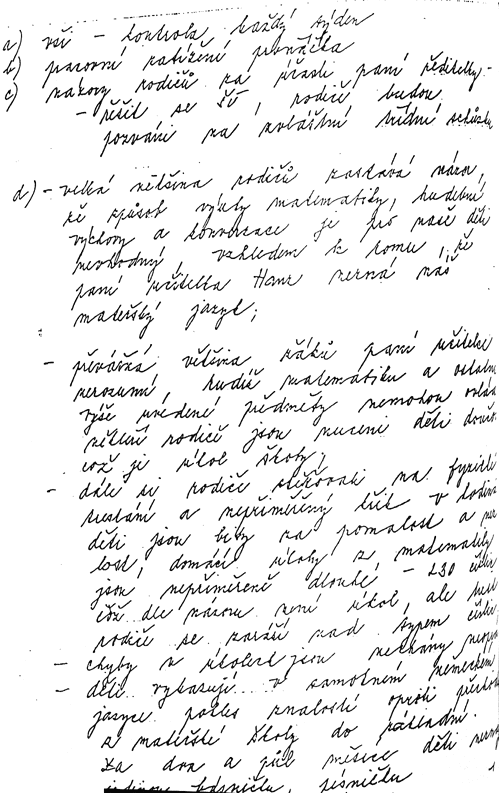 a) vši – kontrola každý týden
b) pracovní zatížení prvňáčka
c) názory rodičů za účasti paní ředitelky –
– řešil se ŠÚ, rodiče budou
pozváni na zvláštní třídní schůzku
d) – velká většina rodičů zastává názor,
že způsob výuky matematiky, hudební
výchovy a konverzace je pro naše děti
nevhodný, vzhledem k tomu, že
paní učitelka Hanz nezná náš
mateřský jazyk;
– převážná většina žáků paní učitelce
nerozumí, tudíž matematiku a ostatní
výše uvedené předměty nemohou
někteří rodiče jsou nuceni děti
což je úkol školy;
– dále si rodiče stěžovali na fyzické
trestání a nepřiměřený křik v hodině
děti jsou bity za pomalost a
lost, domácí úkoly z matematiky
jsou nepřiměřeně dlouhé – 230 číslic
což dle názoru není úkol, ale
rodiče se zaráží nad typem číslic
– chyby v úkolech jsou nechány
– děti vykazují v samotném německém
jazyce pokles znalostí oproti
z mateřské školy do základní.
Za dva a půl měsíce děti
jedinou básničku, písničku